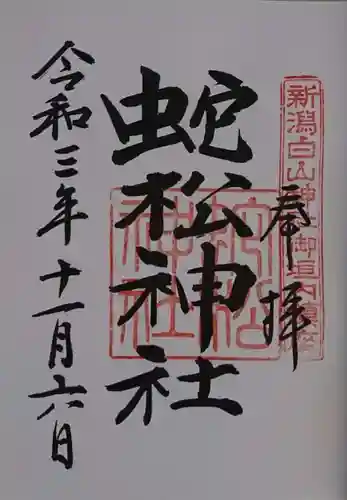 奉拝
新潟白山神社御垣内鎮座
蛇松神社
蛇松神社
令和三年十一月六日